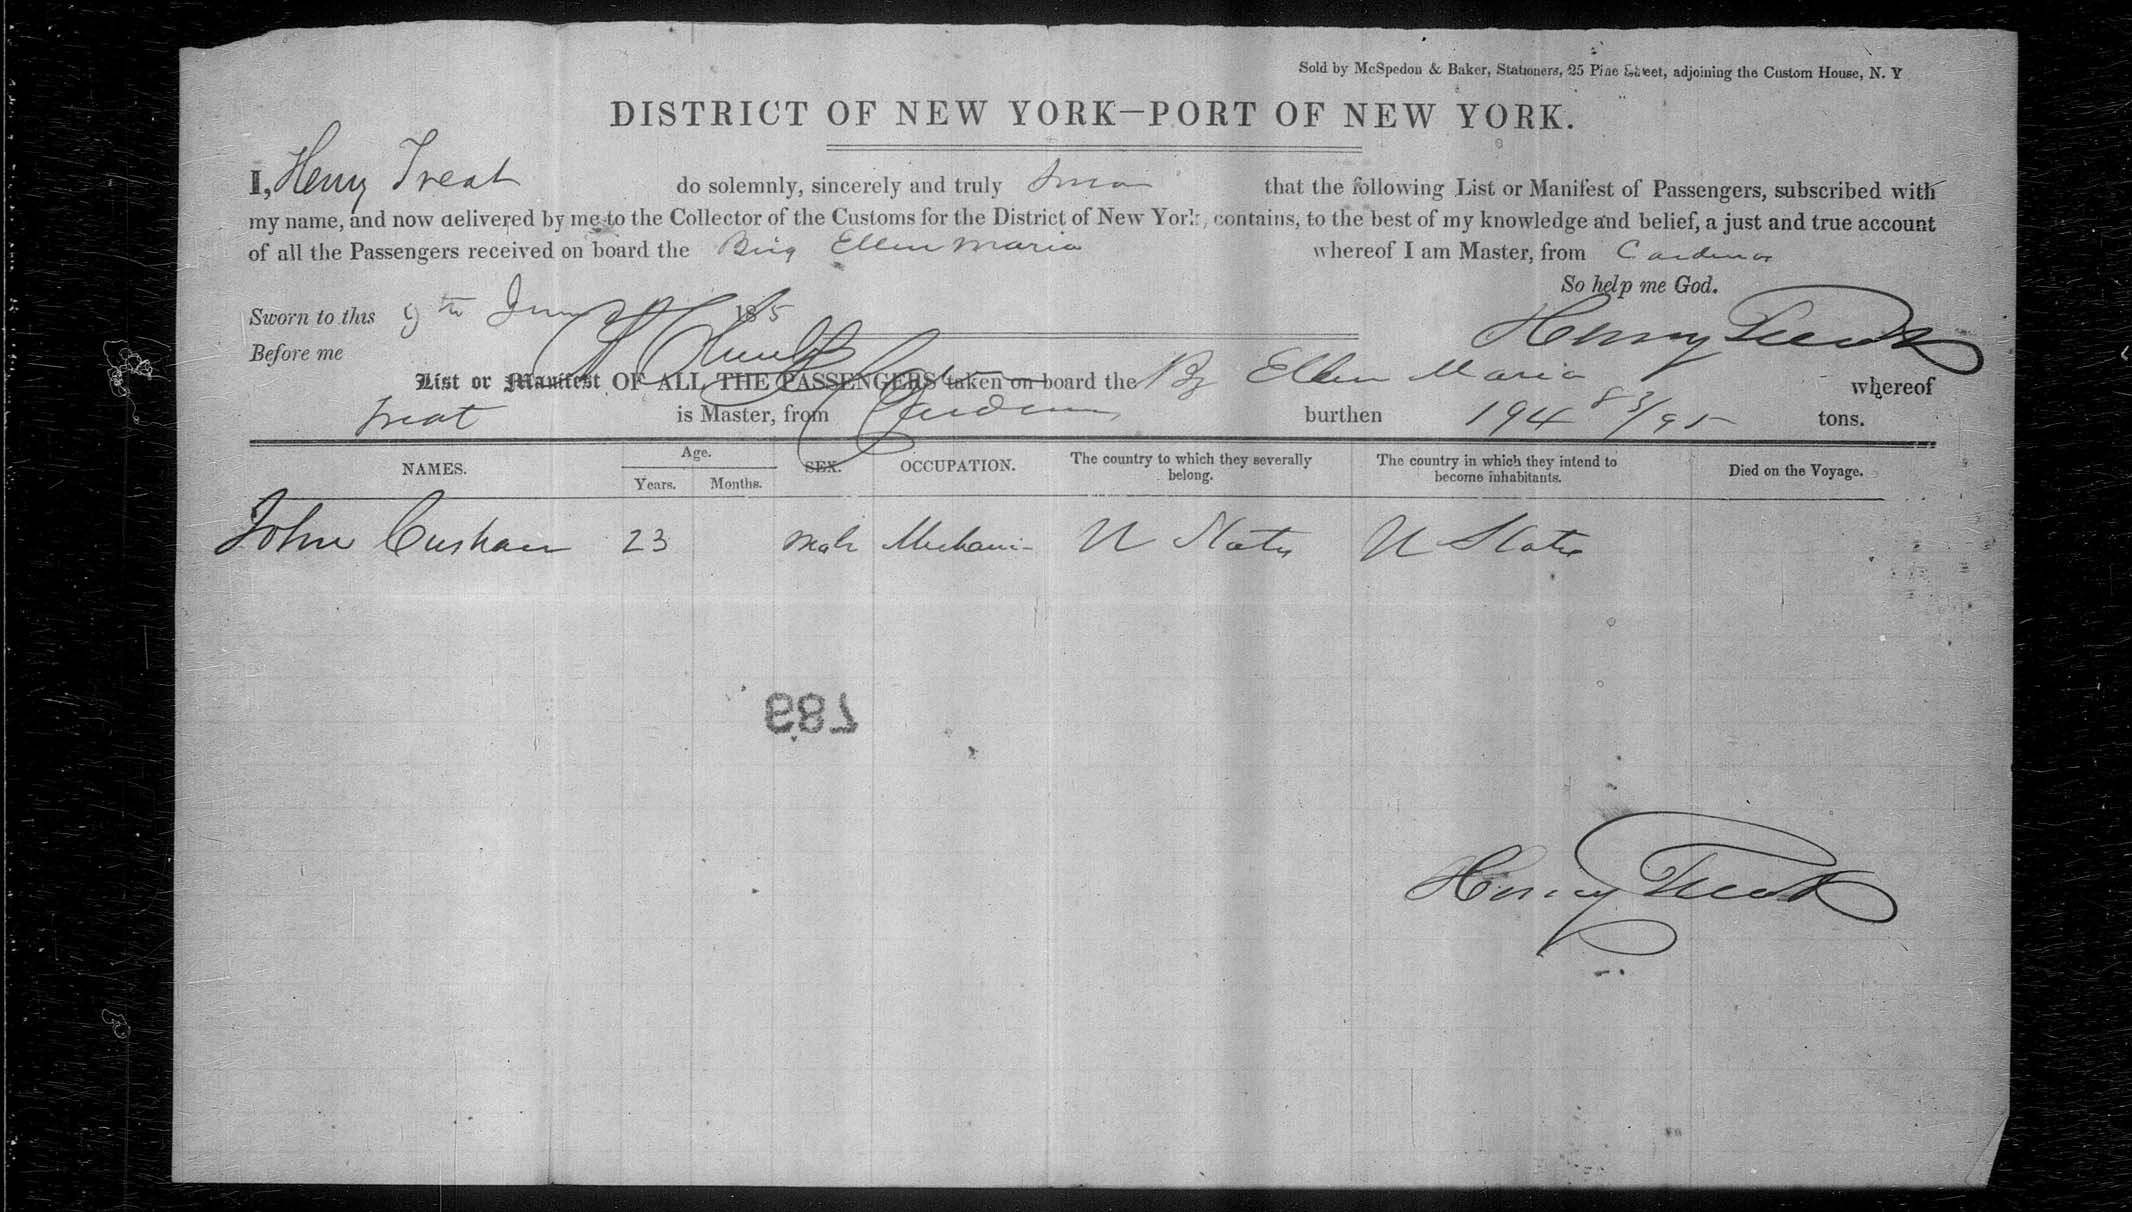 Sold by McSpedon & Baker, Stationers, 25 Pine Street, adjoining the Custom House, N. Y
DISTRICT OF NEW YORK—PORT OF NEW YORK.
I, Henry Treat do solemnly, sincerely and truly Swear that the following List or Manifest of Passengers, subscribed with
my name, and now delivered by me to the Collector of the Customs for the District of New York, contains, to the best of my knowledge and belief, a just and true account
of all the Passengers received on board the Brig Ellen Maria whereof I am Master, from Cardenas
So help me God.
Sworn to this 9th June 185
Henry Treat
Before me
List or Manifest OF ALL THE PASSENGERS taken on board the Bg Ellen Maria whereof
Treat is Master, from Cardenas burthen 194 83/95 tons.
NAMES. Age. Years. Months. SEX. OCCUPATION. The country to which they severally belong. The country in which they intend to become inhabitants. Died on the Voyage.
John Cushan 23 male Mechanic U States U States
789
Henry Treat